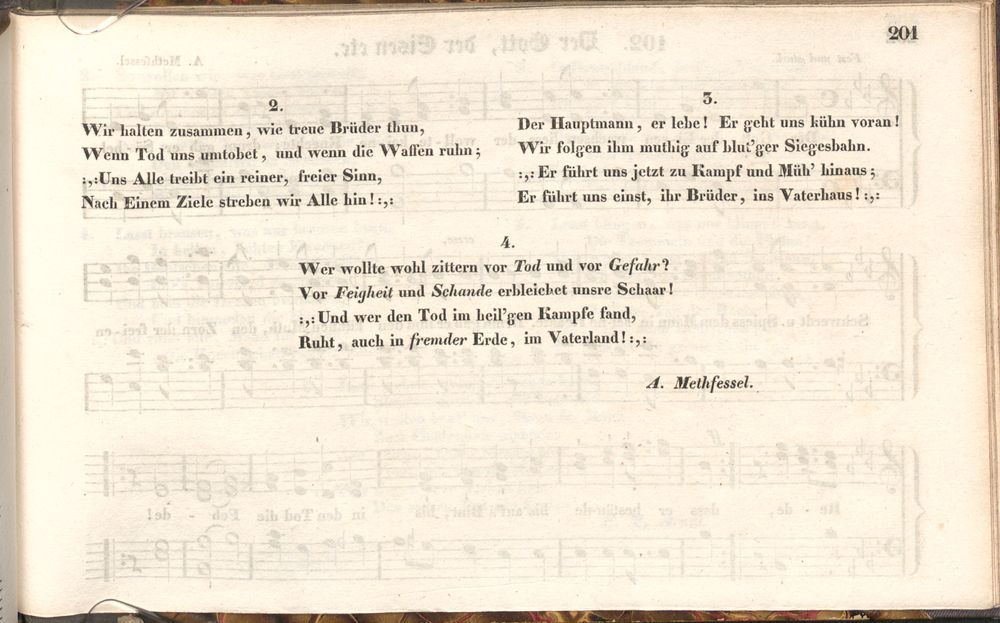 201
2.
Wir halten zusammen, wie treue Brüder thun,
Wenn Tod uns umtobet, und wenn die Waffen ruhn;
:,:Uns Alle treibt ein reiner, freier Sinn,
Nach Einem Ziele streben wir Alle hin!:,:
3.
Der Hauptmann, er lebe! Er geht uns kühn voran!
Wir folgen ihm muthig auf blut'ger Siegesbahn.
:,:Er führt uns jetzt zu Kampf und Müh' hinaus;
Er führt uns einst, ihr Brüder, ins Vaterhaus!:,:
4.
Wer wollte wohl zittern vor Tod und vor Gefahr?
Vor Feigheit und Schande erbleichet unsre Schaar!
:,:Und wer den Tod im heil'gen Kampfe fand,
Ruht, auch in fremder Erde, im Vaterland!:,:
A. Methfessel.